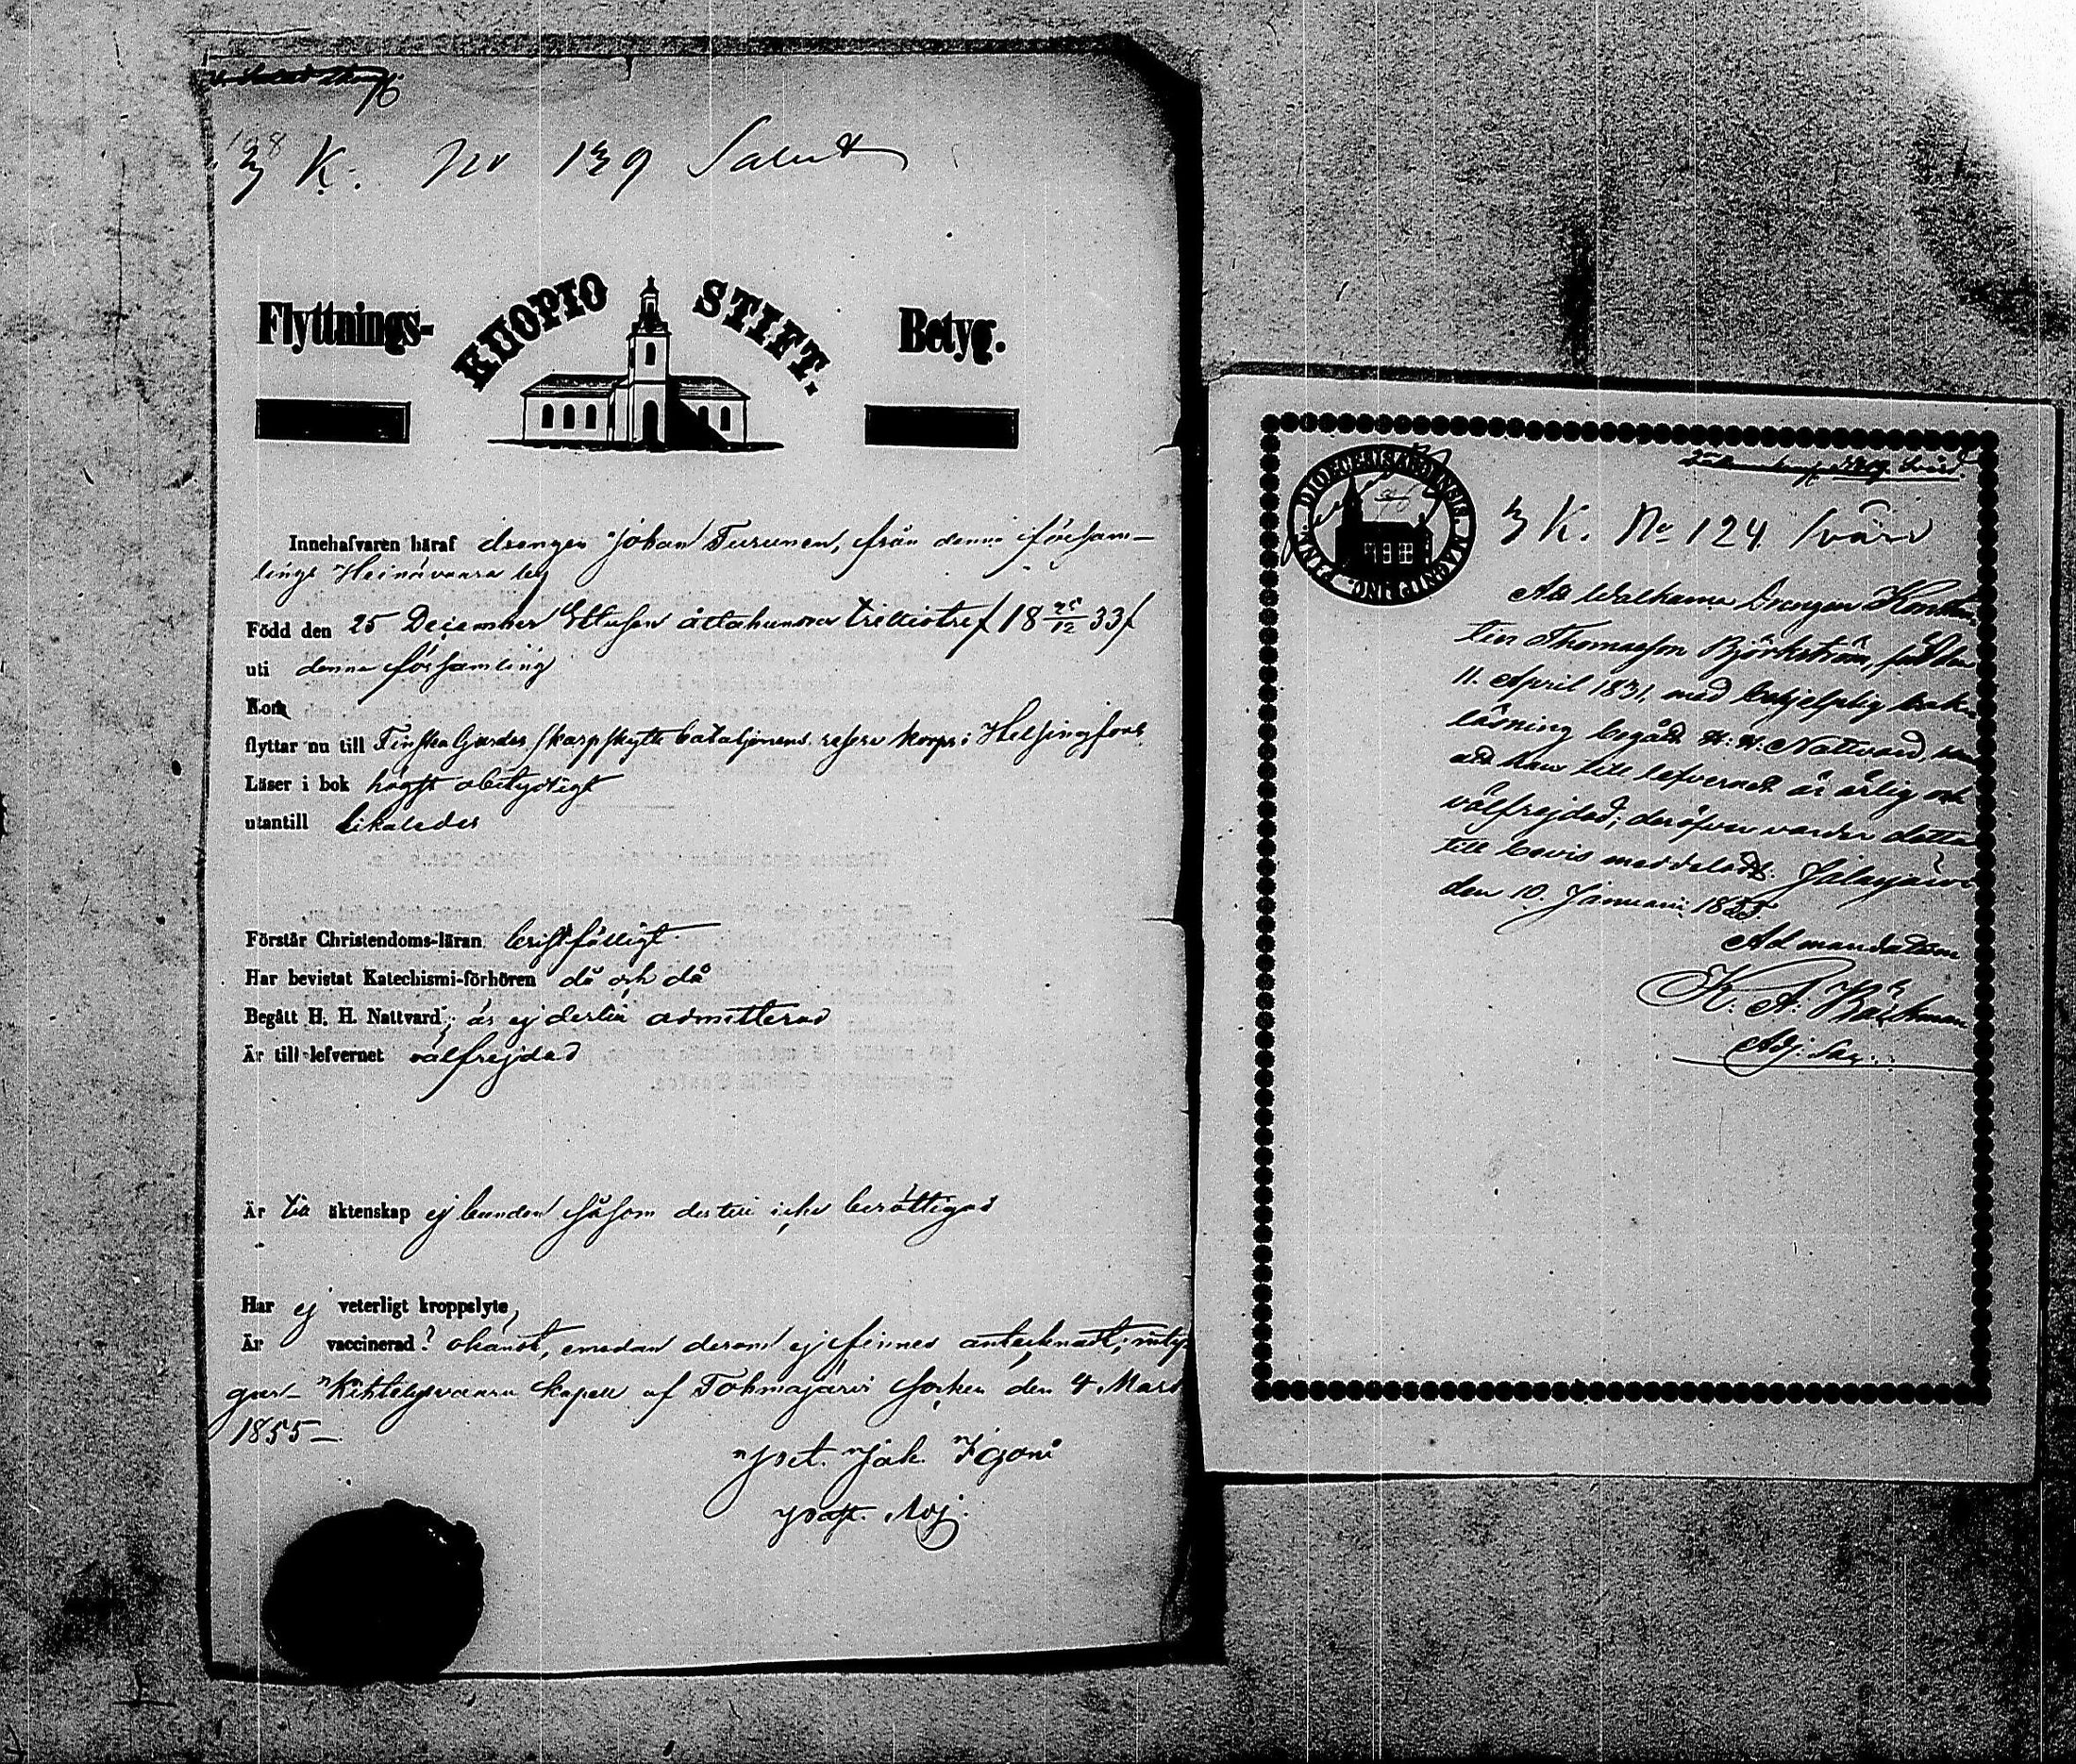 198
3 K. No 139 Salut
Flyttnings-
KUOPIO STIFT.
Betyg.
Innehafvaren häraf drengen Johan Turunen, från denna församlings
Heinävaara by
Född den 25 December Ettusen åttahundra trettiotre / 18 25/12 33 /
uti denna församling
Kom
flyttar nu till Finska Gardes skarpskytte bataljonens reserv korps i Helsingfors
Läser i bok högst obetydligt
utantill likaledes
Förstår Christendoms-läran bristfälligt
Har bevistat Katechismi-förhören då och då
Begått H. H. Nattvard; är ej dertill admitterad
Är till lefvernet välfrejdad
Är till äktenskap ej bunden såsom dertill icke berättigad
Har ej veterligt kroppslyte,
Är vaccinerad? okändt, emedan derom ej finnes antecknadt; intygar
Kihtelysvaara kapell af Tohmajärvi socken den 4 Mars
1855 —
Jak. Igoni
Adj.
DIOECESIS ABOENSIS. MAGNI DUC. FINL.
3 K. No 124 Svärd
Att Walkama Drengen
Thomasson Björkström, född den
11. April 1831, med behjelplig bok-
läsning begått H. H. Nattvard, samt
att han till lefvernet är ärlig och
välfrejdad; deröfver varder detta
till bevis meddeladt. Jalasjärvi
den 10. Januari 1855.
Ad mandatum
K. A. Bäckman
Adj. Sac.